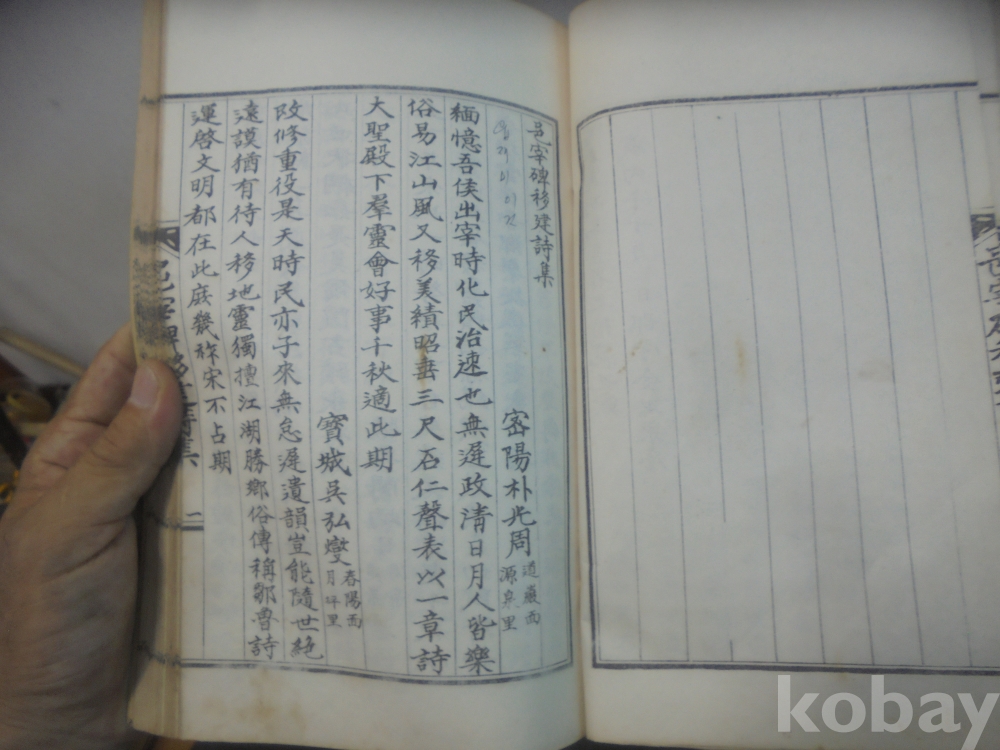 邑宰碑移建詩集
密陽朴光周 道巖面 源泉里
緬憶吾侯出宰時化民治速也無遲政清日月人皆樂
俗易江山風又移美績昭垂三尺石仁聲表以一章詩
大聖殿下羣靈會好事千秋適此期
寶城吳弘燮 春陽面 月坪里
改修重役是天時民亦子來無怠遲遺韻豈能隨世絶
遠謨猶有待人移地靈獨擅江湖勝鄉俗傳稱鄒魯詩
運啓文明都在此庭幾祚宋不占期
邑宰碑移建詩集 一
kobay